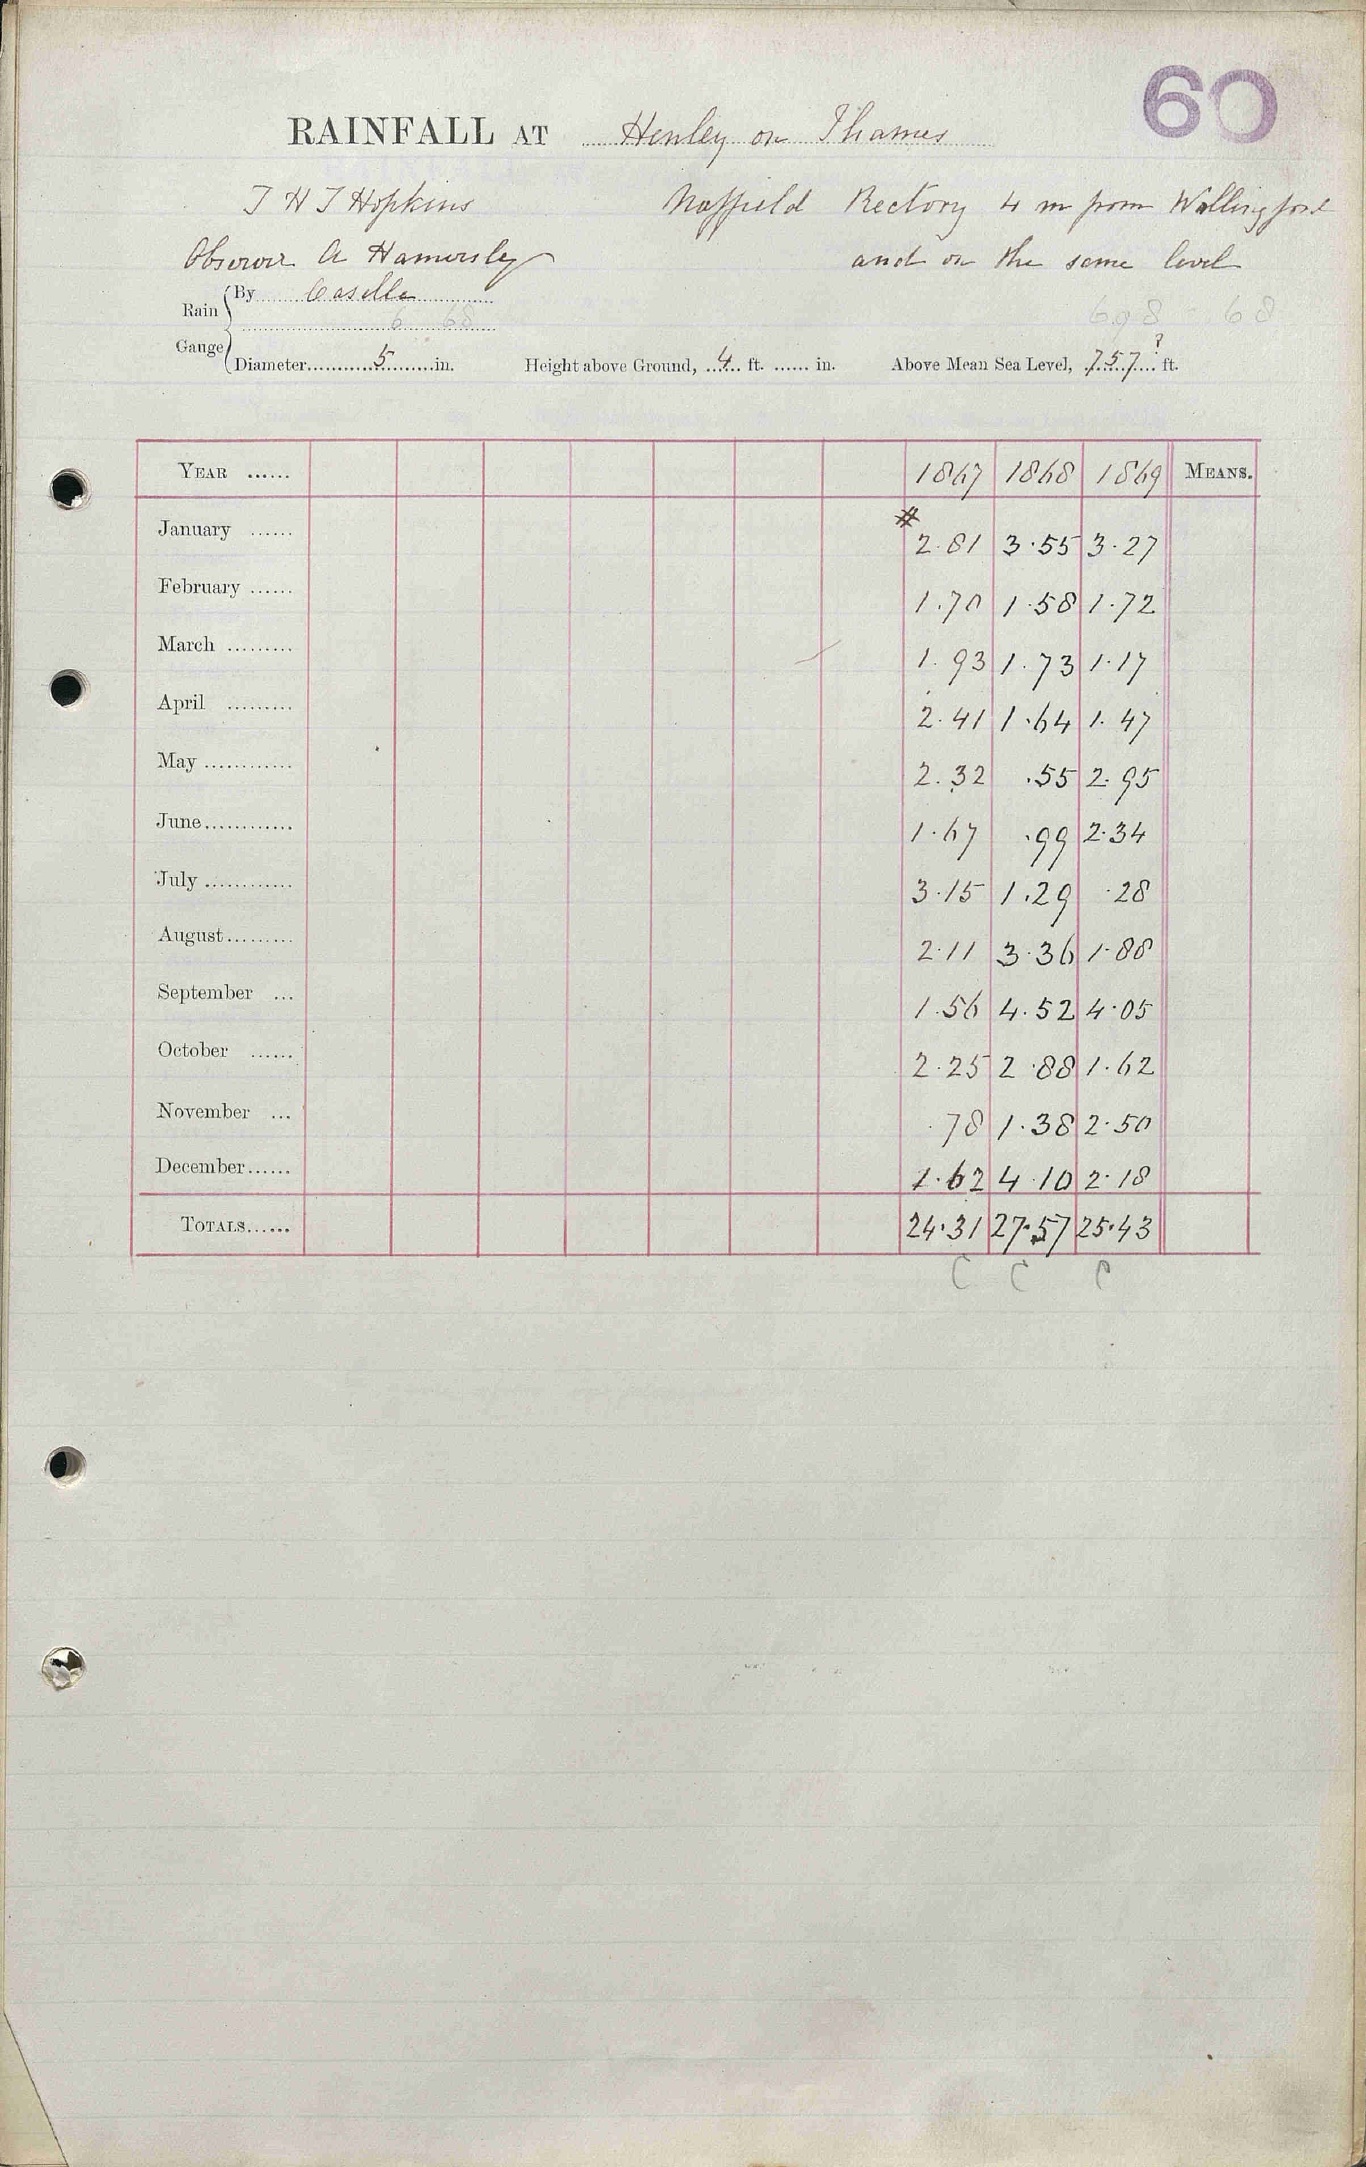 60
RAINFALL AT Henley on Thames
T H T Hopkins Nuffield Rectory 4 m from Wallingford
Observer A Hamersley and on the same level
Rain Gauge By Casella
6 68 698 - 68
Diameter 5 in. Height above Ground, 4 ft. in. Above Mean Sea Level, 757 ? ft.
YEAR 1867 1868 1869 MEANS.
January # 2.81 3.55 3.27
February 1.70 1.58 1.72
March 1.93 1.73 1.17
April 2.41 1.64 1.47
May 2.32 .55 2.95
June 1.67 .99 2.34
July 3.15 1.29 .28
August 2.11 3.36 1.88
September 1.56 4.52 4.05
October 2.25 2.88 1.62
November .78 1.38 2.50
December 1.62 4.10 2.18
TOTALS 24.31 27.57 25.43
C C C